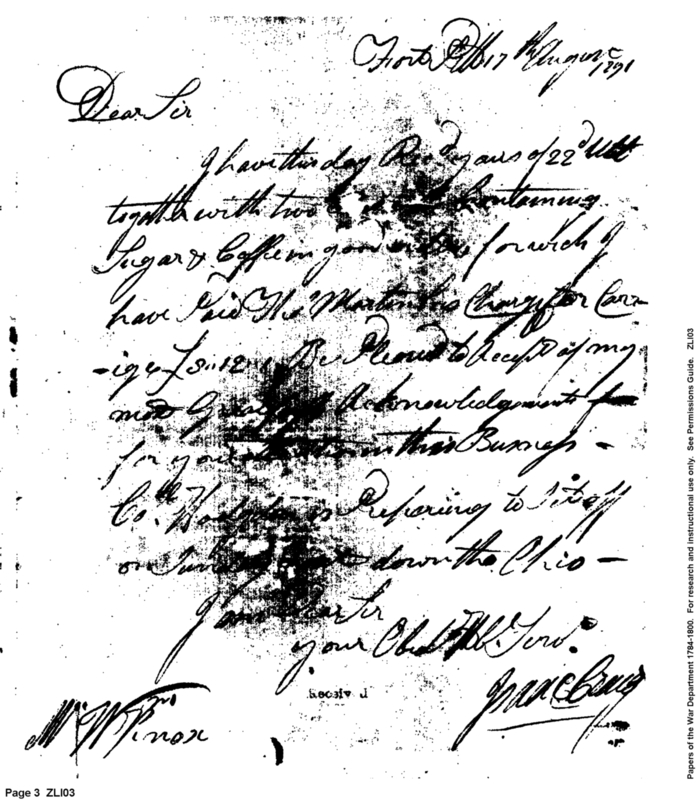 Fort Pitt 17th August 1791
Dear Sir
I have this day Recd yours of 22d Ultt
together with two Containing
Sugar & Coffee in good order for which I
have Paid Thos Martin his Charge for Carr-
-iage £ 3..12 Be Pleased to Accept of my
most Gratefull Acknowledgements
for your attention in this Business -
Colo. Hodgdon is Preparing to Set off
on Sunday down the Ohio -
I am Dear Sir
your Obedt Hble. Serv.
Isaac Craig
Mr Wm Knox
Receiv d
Page 3 ZLI03
Papers of the War Department 1784-1800. For research and instructional use only. See Permissions Guide. ZLI03